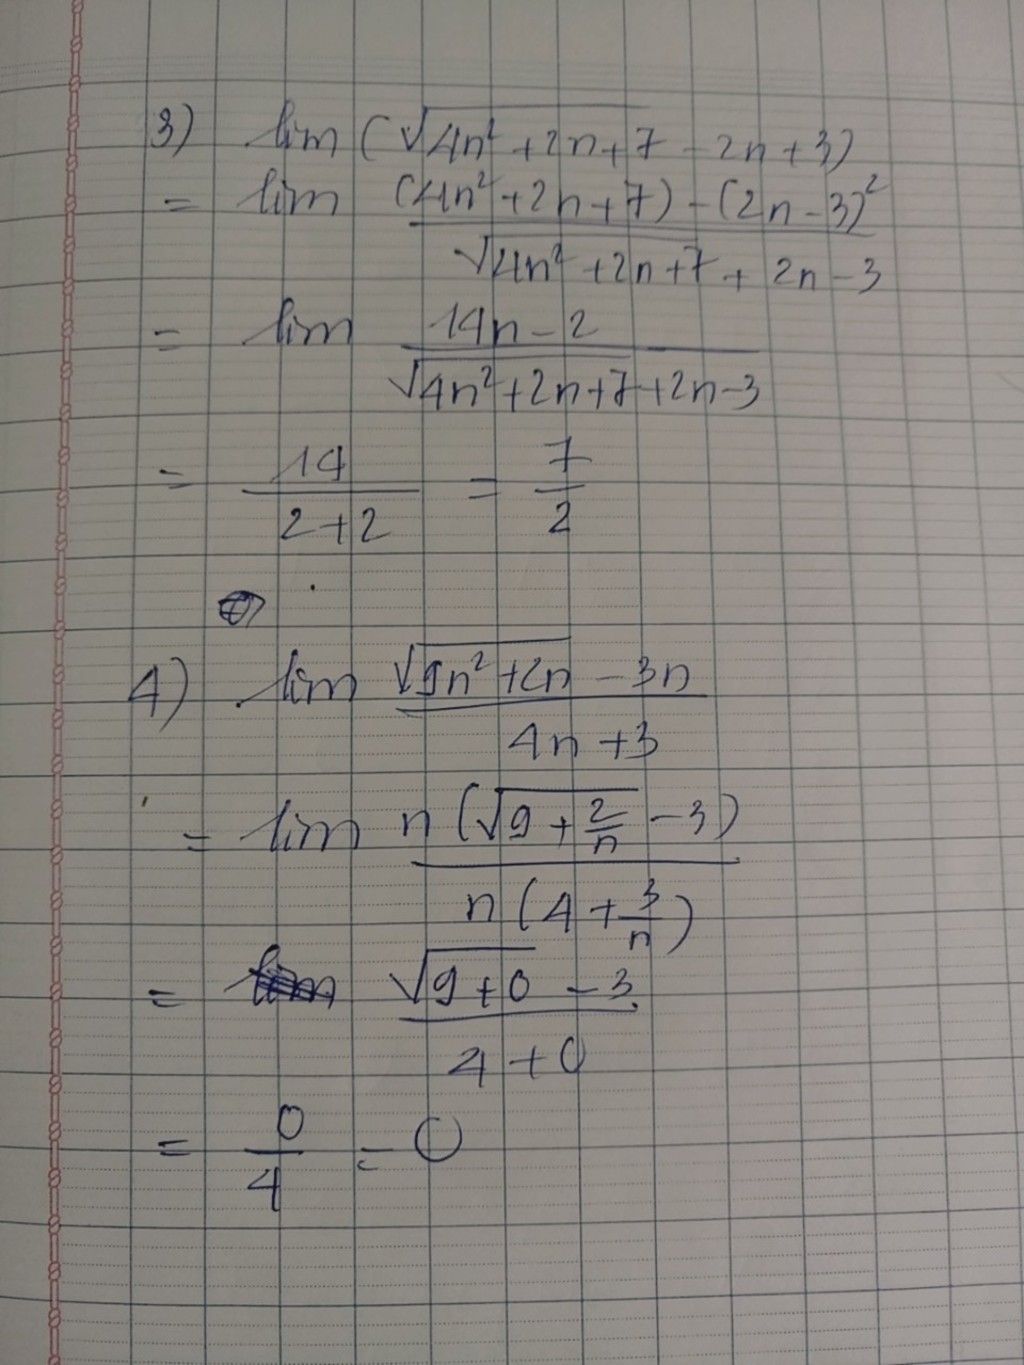 3) lim (√(4n² + 2n + 7) - 2n + 3)
= lim ((4n² + 2n + 7) - (2n - 3)²) / (√(4n² + 2n + 7) + 2n - 3)
= lim (14n - 2) / (√(4n² + 2n + 7) + 2n - 3)
= 14 / (2 + 2) = 7/2
4) lim (√(9n² + 2n) - 3n) / (4n + 3)
= lim n(√(9 + 2/n) - 3) / n(4 + 3/n)
= (√(9 + 0) - 3) / (4 + 0)
= 0/4 = 0